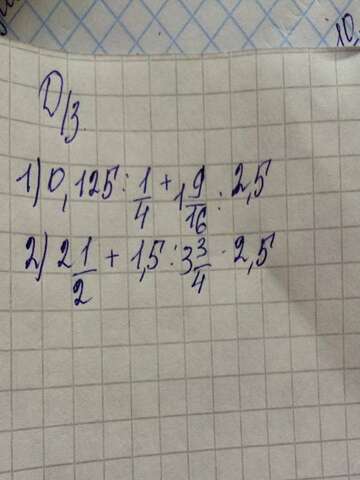 10
Д/з.
1) 0,125 : 1/4 + 1 9/16 : 2,5
2) 2 1/2 + 1,5 : 3 3/4 · 2,5